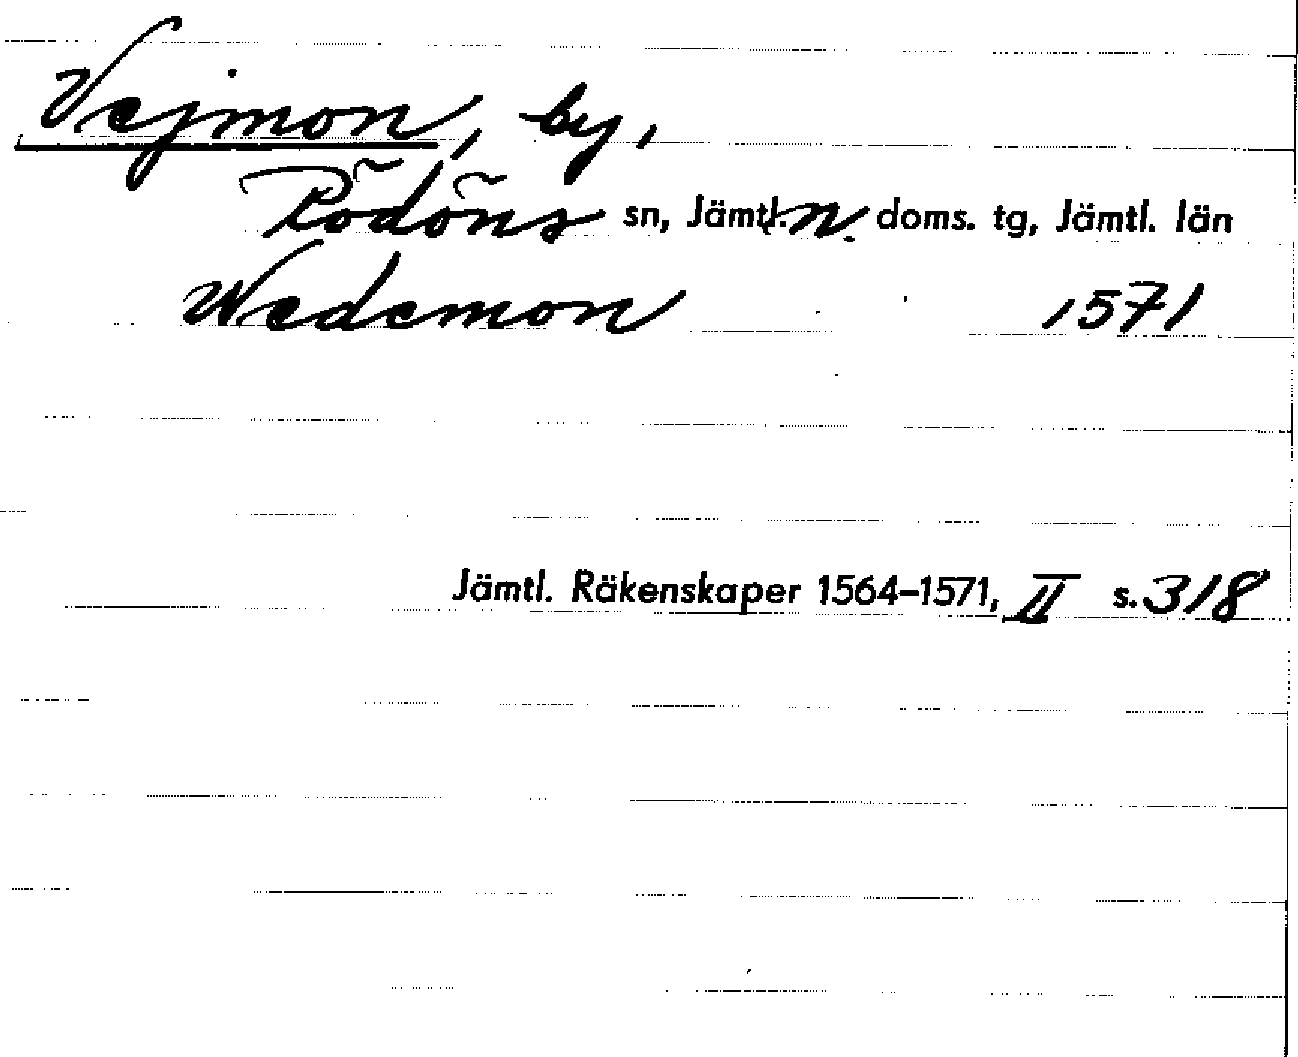 Vejmon, by,
Rödöns sn, Jämtl. n. doms. tg, Jämtl. län
Wedemon 1571
Jämtl. Räkenskaper 1564–1571, II s. 318